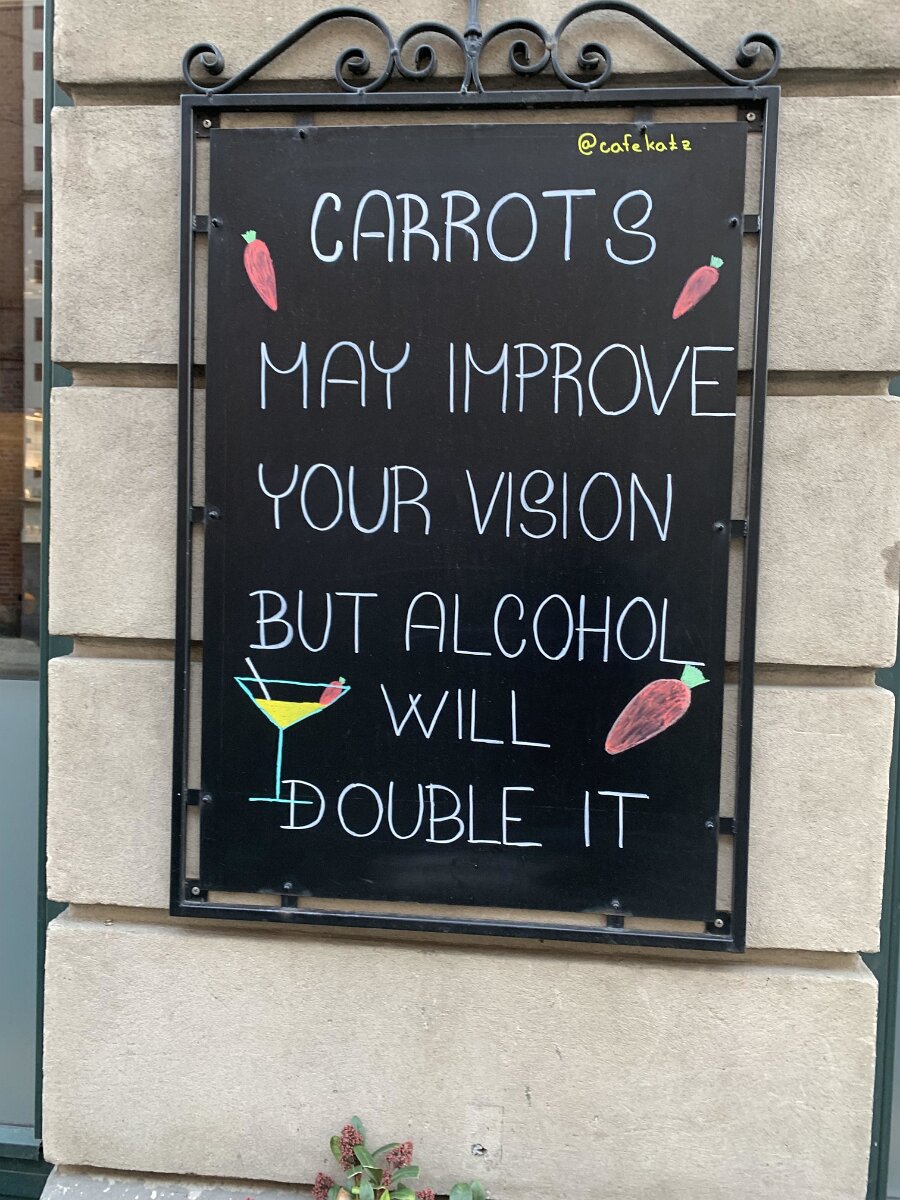 @cafekatz
CARROTS
MAY IMPROVE
YOUR VISION
BUT ALCOHOL
WILL
DOUBLE IT